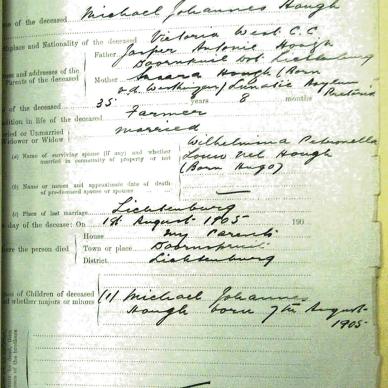 e of the deceased Michael Johannes Hough
thplace and Nationality of the deceased Victoria West C.C.
mes and addresses of the Parents of the deceased
Father Jasper Antonie Hough
Doornkuil Dist. Lichtenburg
Mother Hough (Born
v.d. Westhuizen) Lunatic Asylum
Pretoria
of the deceased 35 years 8 months
ndition in life of the deceased Farmer
rried or Unmarried married
Widower or Widow
(a) Name of surviving spouse (if any) and whether married in community of property or not
Wilhelmina Petronella
Hough
(Born Hugo)
(b) Name or names and approximate date of death of pre-deceased spouse or spouses
(c) Place of last marriage Lichtenburg
day of the decease: On August 1905 190
here the person died
House my Parents
Town or place Doornkuil
District Lichtenburg
mes of Children of deceased and whether majors or minors
(1) Michael Johannes
Hough born 7th August
1905